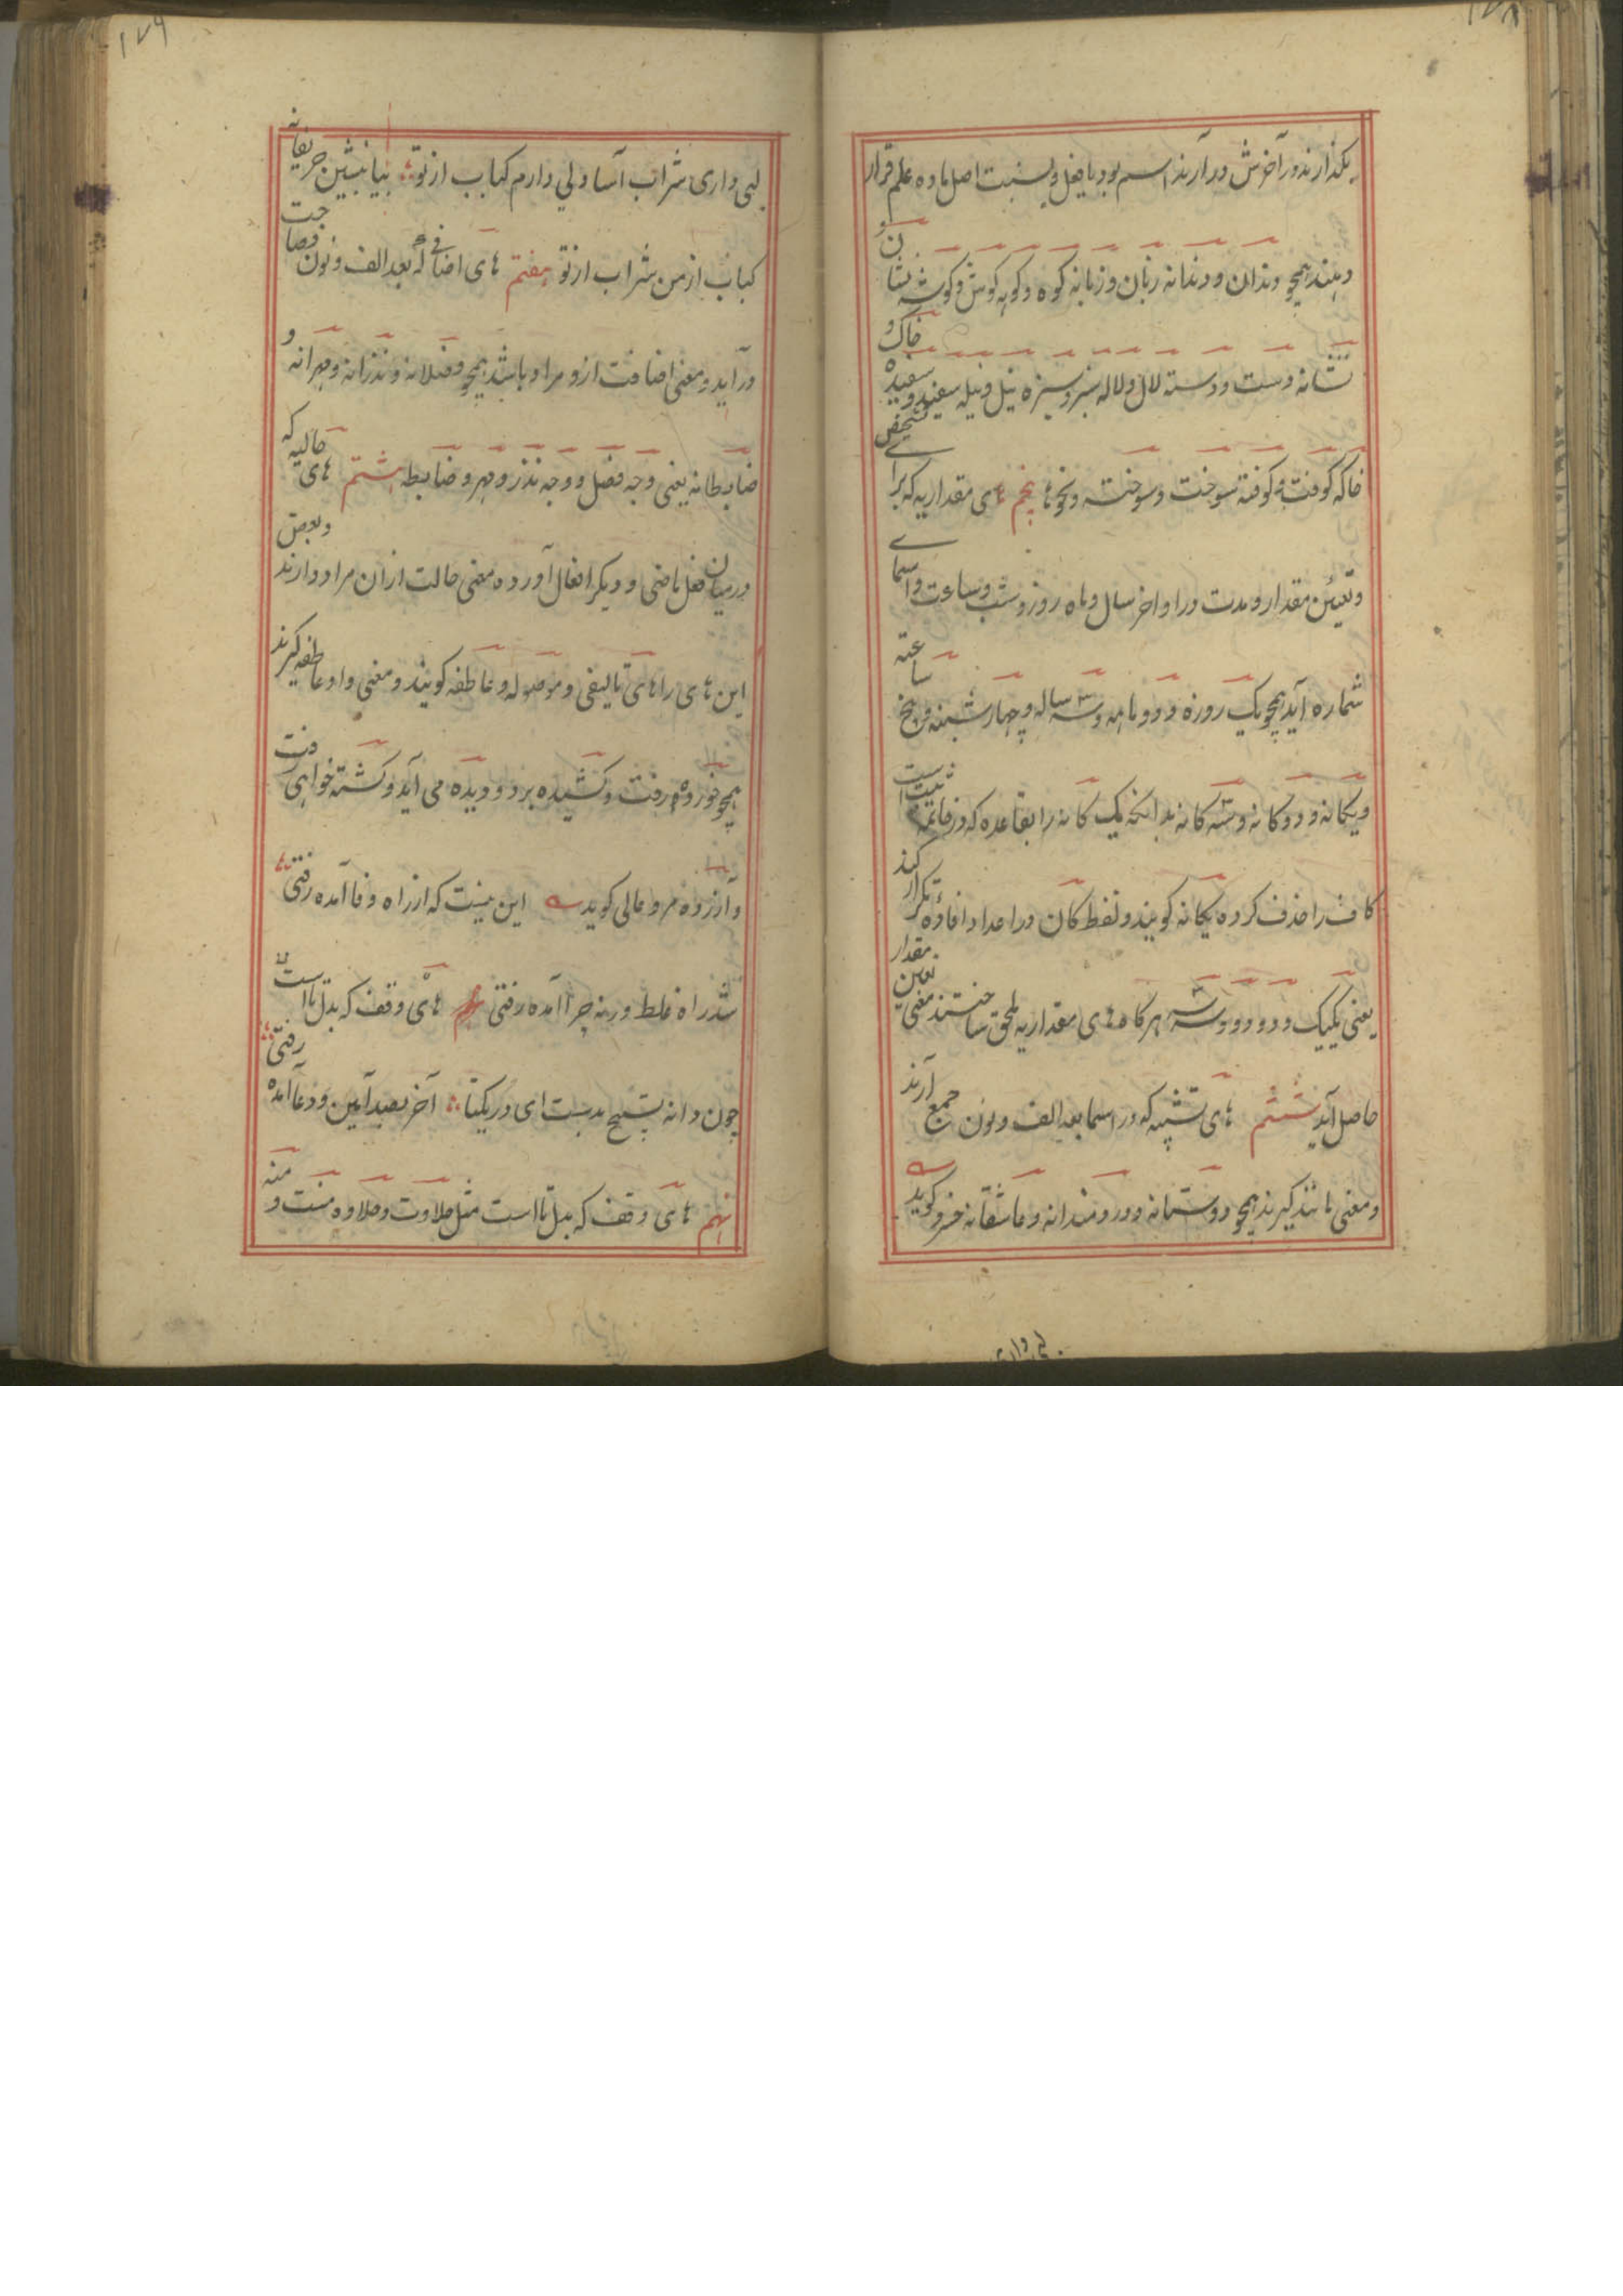 ۱۷۸
بگذارند و در آخرش در آرند اسم بود یا فعل و بسبت اصل ماده علم قرار
دهند همچو دندان و دندانه زبان و زبانه کوه و کوهه کوش و کوشه نشان
نشانه دست و دسته لال و لاله سبز و سبزه نیل و نیله سفید و سفیده خاک و
خاکه کوفت و کوفته سوخت و سوخته و نحوها پنجم های مقداریه که برای تشخیص
و تعین مقدار و مدت در اواخر سال و ماه روز و شب و ساعت و اسمای
شماره آید همچو یک روزه و دو ماهه و سه ساله و چهار شبنه و پنج ساعته
و یکانه و دوکانه و سه کانه بدانکه یک کانه را بقاعده که در خاتمه ثبت است
کاف را حذف کرده یکانه کویند و لفظ کان در اعداد افاده تکرار کند
یعنی یکیک و دو دو و سه سه هرکاه های مقداریه ملحق ساختند معنی تعین مقدار
حاصل آید ششم های تشبیه که در اسما بعد الف و نون جمع آرند
و معنی مانند کیرند همچو دوستانه و دردمندانه و عاشقانه خسرو کوید
لبی داری
۱۷۹
لبی داری شراب آسا دلی دارم کباب از تو بیا بنشین حریفانه
کباب از من شراب از تو هفتم های اضافی که بعد الف و نون مصاحبت
در آید و معنی اضافت ازو مراد باشد همچو فضلانه و نذرانه و مهرانه و
ضابطانه یعنی وجه فضل و وجه نذر و مهر و ضابطه هشتم های حالیه که
درمیان فعل ماضی و دیکر افعال آورده معنی حالت ازان مراد دارند و بعض
این های را های تالیفی و موصوله و عاطفه کویند و معنی واو عاطفه کیرند
همچو خورده رفت و کشیده برد و دیده می آید و کشته خواهی رفت
و آزرده مرو عالی کوید این نیست که از راه وفا آمده رفتی
شد راه غلط ورنه چرا آمده رفتی نهم های وقف که بدل تا است
چون دانه تسبیح بدست ای در یکتا آخر بصد آمین و دعا آمده رفتی
نهم های وقف که بدل تا است مثل حلاوت و حلاوه منت و منه